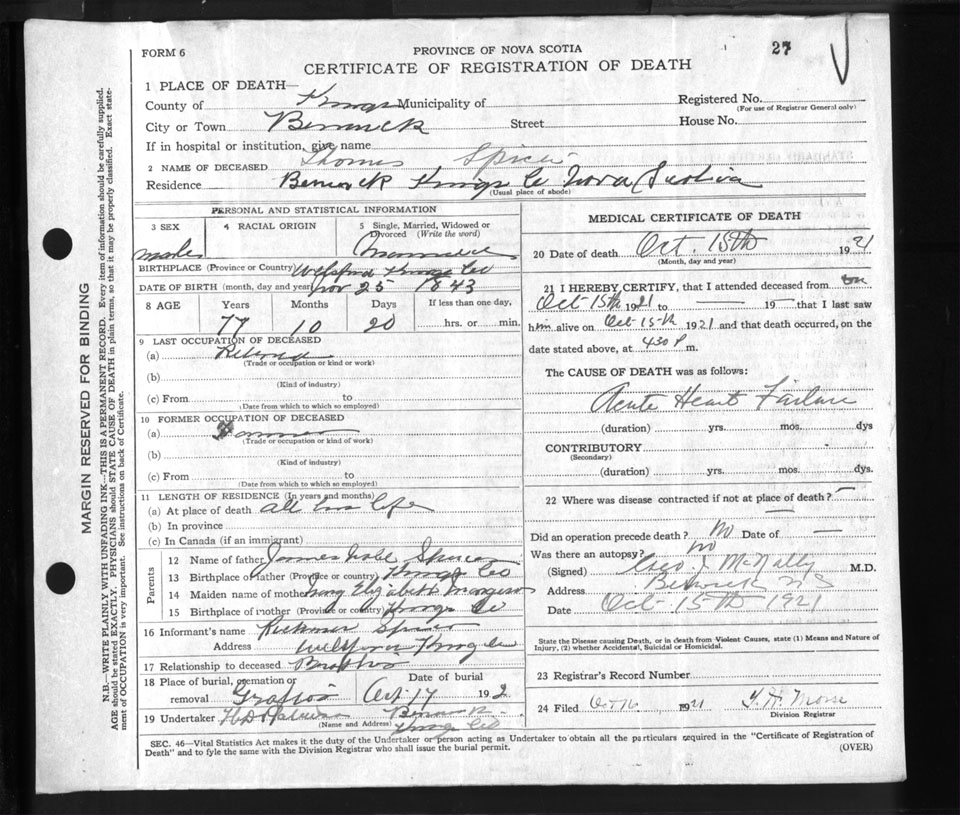 FORM 6
PROVINCE OF NOVA SCOTIA
27
CERTIFICATE OF REGISTRATION OF DEATH
1 PLACE OF DEATH—
County of Kings Municipality of
Registered No.
(For use of Registrar General only)
City or Town Berwick Street
House No.
If in hospital or institution, give name
2 NAME OF DECEASED Thomas Spicer
Residence Berwick Kings Co Nova Scotia
(Usual place of abode)
PERSONAL AND STATISTICAL INFORMATION
3 SEX
4 RACIAL ORIGIN
5 Single, Married, Widowed or Divorced (Write the word)
male
BIRTHPLACE (Province or Country) Welsford Kings Co
DATE OF BIRTH (month, day and year) Nov 25 1843
8 AGE Years Months Days If less than one day,
77 10 20 hrs. or min.
9 LAST OCCUPATION OF DECEASED
(a) Retired
(Trade or occupation or kind or work)
(b)
(Kind of industry)
(c) From to
(Date from which to which so employed)
10 FORMER OCCUPATION OF DECEASED
(a) Farmer
(Trade or occupation or kind of work)
(b)
(Kind of industry)
(c) From to
(Date from which to which so employed)
11 LENGTH OF RESIDENCE (In years and months)
(a) At place of death all his life
(b) In province
(c) In Canada (if an immigrant)
Parents
12 Name of father James
13 Birthplace of father (Province or country) Kings Co
14 Maiden name of mother Elizabeth
15 Birthplace of mother (Province or country) Kings Co
16 Informant's name
Address Welsford Kings Co
17 Relationship to deceased Brother
18 Place of burial, cremation or removal Grafton
Date of burial
Oct 17 192
19 Undertaker Berwick
(Name and Address) Kings Co
MEDICAL CERTIFICATE OF DEATH
20 Date of death Oct. 15th 1921
(Month, day and year)
21 I HEREBY CERTIFY, that I attended deceased from
Oct 15th 1921 to — 19 — that I last saw
him alive on Oct 15th 1921 and that death occurred, on the
date stated above, at 430 P m.
The CAUSE OF DEATH was as follows:
Acute Heart Failure
(duration) yrs. mos. dys
CONTRIBUTORY
(Secondary)
(duration) yrs. mos. dys.
22 Where was disease contracted if not at place of death? —
Did an operation precede death? No Date of —
Was there an autopsy? no
(Signed) Geo. J. McNally M.D.
Address Berwick NS
Date Oct 15th 1921
State the Disease causing Death, or in death from Violent Causes, state (1) Means and Nature of
Injury, (2) whether Accidental, Suicidal or Homicidal.
23 Registrar's Record Number
24 Filed Oct 16 1921 Morse
Division Registrar
SEC. 46—Vital Statistics Act makes it the duty of the Undertaker or person acting as Undertaker to obtain all the particulars required in the "Certificate of Registration of
Death" and to fyle the same with the Division Registrar who shall issue the burial permit.
(OVER)
MARGIN RESERVED FOR BINDING
N.B.—WRITE PLAINLY WITH UNFADING INK—THIS IS A PERMANENT RECORD. Every item of information should be carefully supplied.
AGE should be stated EXACTLY. PHYSICIANS should STATE CAUSE OF DEATH in plain terms, so that it may be properly classified. Exact statement
of OCCUPATION is very important. See instructions on back of Certificate.